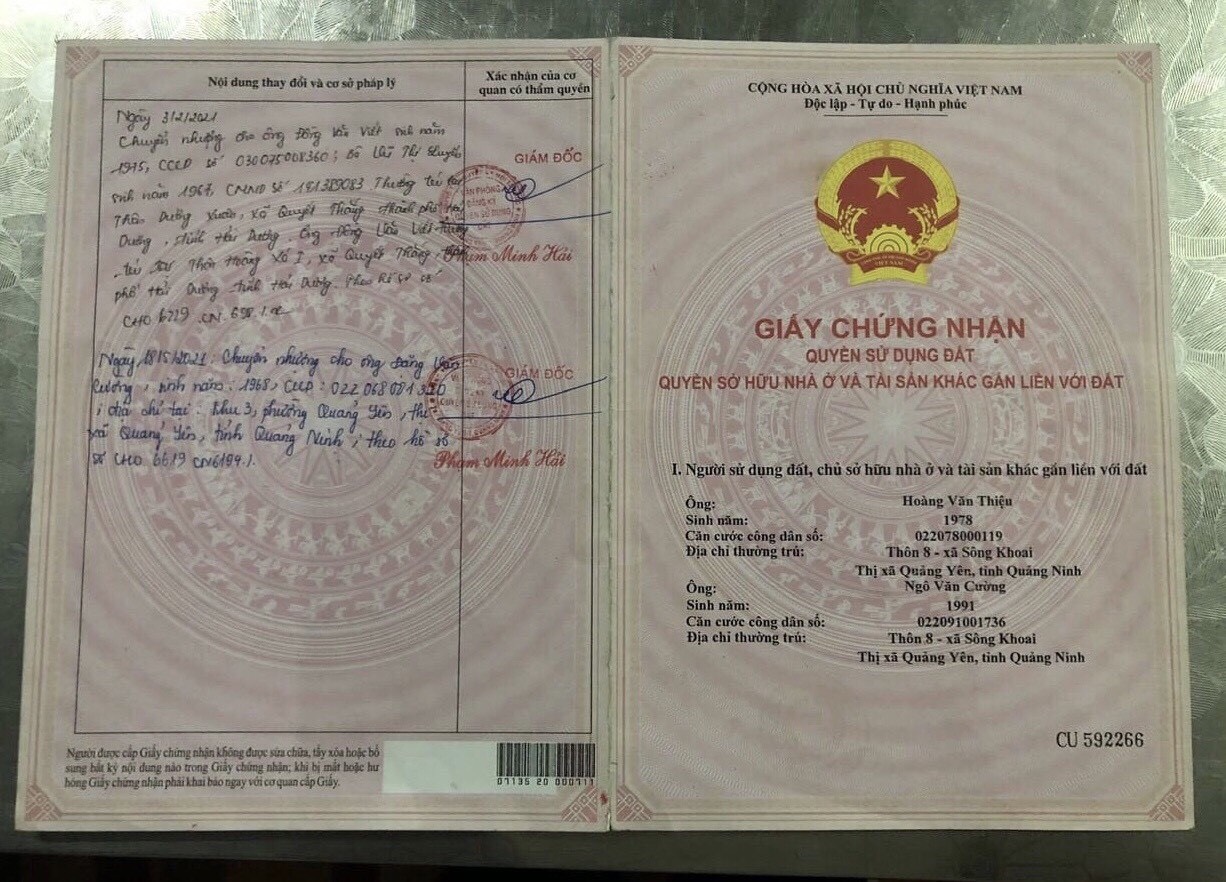 Nội dung thay đổi và cơ sở pháp lý
Xác nhận của cơ
quan có thẩm quyền
Ngày 3/2/2021
Chuyển nhượng cho ông Đồng Văn Việt sinh năm
1975, CCCD số 030075008360; Bà Vũ Thị
sinh năm 1967, CMND số 181389083 Thường trú tại
Thôn Dương Xuân, xã Quyết Thắng thành phố Hải
Dương, tỉnh Hải Dương. Ông Đồng Văn Việt thường
trú tại Thôn Hoàng Xá I, xã Quyết Thắng,
phố Hải Dương tỉnh Hải Dương. Theo hồ sơ số
CN 698.1
GIÁM ĐỐC
Phạm Minh Hải
Ngày 18/5/2021: Chuyển nhượng cho ông Đăng Văn
Cương, sinh năm: 1968, CCCD: 022068081320
, địa chỉ tại: Khu 3, phường Quảng Yên, thị
xã Quảng Yên, tỉnh Quảng Ninh, theo hồ sơ
số CHO 6619 CN6194.1.
GIÁM ĐỐC
Phạm Minh Hải
Người được cấp Giấy chứng nhận không được sửa chữa, tẩy xóa hoặc bổ
sung bất kỳ nội dung nào trong Giấy chứng nhận; khi bị mất hoặc hư
hỏng Giấy chứng nhận phải khai báo ngay với cơ quan cấp Giấy.
07135 20 000711
CỘNG HÒA XÃ HỘI CHỦ NGHĨA VIỆT NAM
Độc lập - Tự do - Hạnh phúc
VIỆT NAM
GIẤY CHỨNG NHẬN
QUYỀN SỬ DỤNG ĐẤT
QUYỀN SỞ HỮU NHÀ Ở VÀ TÀI SẢN KHÁC GẮN LIỀN VỚI ĐẤT
I. Người sử dụng đất, chủ sở hữu nhà ở và tài sản khác gắn liền với đất
Ông: Hoàng Văn Thiệu
Sinh năm: 1978
Căn cước công dân số: 022078000119
Địa chỉ thường trú: Thôn 8 - xã Sông Khoai
Thị xã Quảng Yên, tỉnh Quảng Ninh
Ông: Ngô Văn Cường
Sinh năm: 1991
Căn cước công dân số: 022091001736
Địa chỉ thường trú: Thôn 8 - xã Sông Khoai
Thị xã Quảng Yên, tỉnh Quảng Ninh
CU 592266